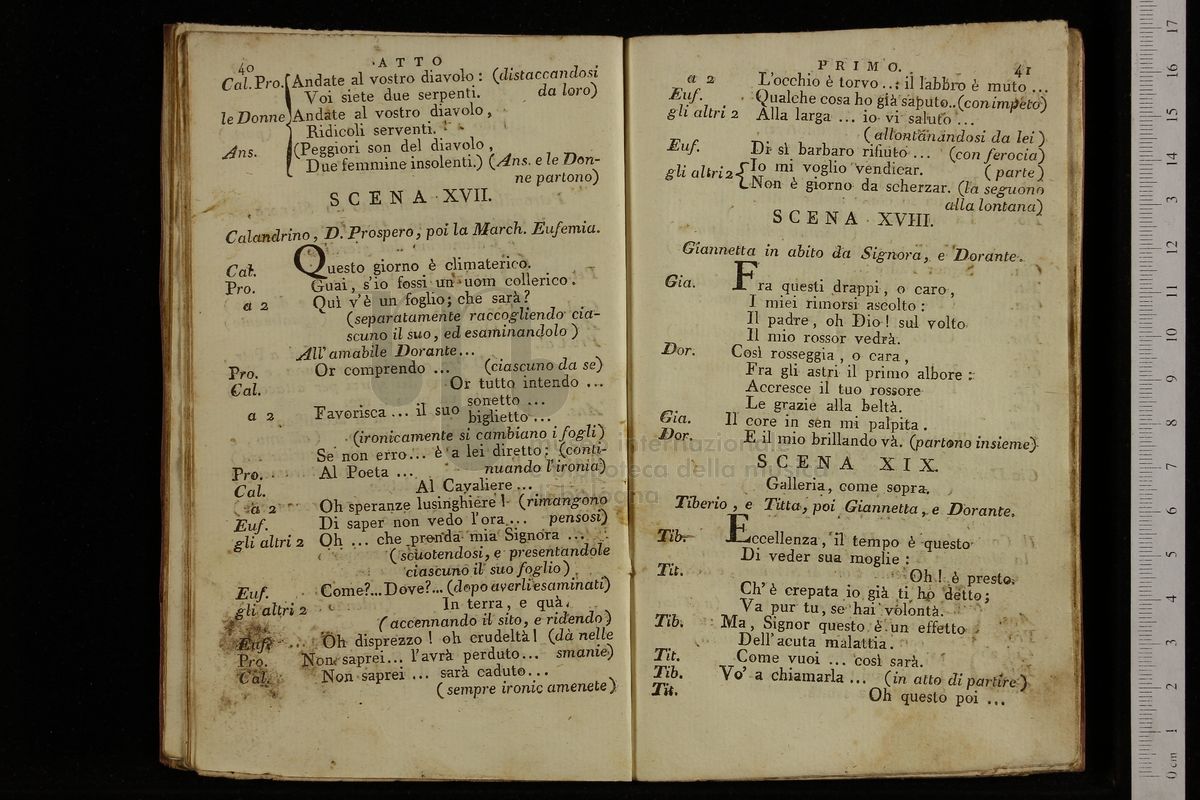 40
ATTO
Cal. Pro. Andate al vostro diavolo : (distaccandosi
Voi siete due serpenti. da loro)
le Donne Andate al vostro diavolo,
Ridicoli serventi.
Ans. (Peggiori son del diavolo,
Due femmine insolenti.) (Ans. e le Don-
ne partono)
SCENA XVII.
Calandrino, D. Prospero, poi la March. Eufemia.
Cal. Questo giorno è climaterico.
Pro. Guai, s'io fossi un uom collerico.
a 2 Quì v'è un foglio; che sarà?
(separatamente raccogliendo cia-
scuno il suo, ed esaminandolo)
All'amabile Dorante...
Pro. Or comprendo ... (ciascuno da se)
Cal. Or tutto intendo ...
a 2 Favorisca ... il suo sonetto ...
biglietto ...
(ironicamente si cambiano i fogli)
Se non erro... è a lei diretto; (conti-
Pro. Al Poeta ... nuando l'ironia)
Cal. Al Cavaliere ...
a 2 Oh speranze lusinghiere! (rimangono
Euf. Di saper non vedo l'ora ... pensosi)
gli altri 2 Oh ... che prenda mia Signora ...
(scuotendosi, e presentandole
ciascuno il suo foglio)
Euf. Come?... Dove?... (dopo averli esaminati)
gli altri 2 In terra, e quà.
(accennando il sito, e ridendo)
Euf. Oh disprezzo! oh crudeltà! (dà nelle
Pro. Non saprei... l'avrà perduto... smanie)
Cal. Non saprei ... sarà caduto...
(sempre ironic amenete)
PRIMO.
41
a 2 L'occhio è torvo ... il labbro è muto ...
Euf. Qualche cosa ho già saputo..(con impeto)
gli altri 2 Alla larga ... io vi saluto ...
(allontanandosi da lei)
Euf. Di sì barbaro rifiuto ... (con ferocia)
gli altri 2 Io mi voglio vendicar. (parte)
Non è giorno da scherzar. (la seguono
alla lontana)
SCENA XVIII.
Giannetta in abito da Signora, e Dorante.
Gia. Fra questi drappi, o caro,
I miei rimorsi ascolto :
Il padre, oh Dio! sul volto
Il mio rossor vedrà.
Dor. Così rosseggia, o cara,
Fra gli astri il primo albore :
Accresce il tuo rossore
Le grazie alla beltà.
Gia. Il core in sen mi palpita.
Dor. E il mio brillando và. (partono insieme)
SCENA XIX.
Galleria, come sopra.
Tiberio, e Titta, poi Giannetta, e Dorante.
Tib. Eccellenza, il tempo è questo
Di veder sua moglie :
Tit. Oh! è presto.
Ch'è crepata io già ti ho detto;
Va pur tu, se hai volontà.
Tib. Ma, Signor questo è un effetto
Dell'acuta malattia.
Tit. Come vuoi ... così sarà.
Tib. Vo' a chiamarla ... (in atto di partire)
Tit. Oh questo poi ...
museo internazionale
biblioteca della musica
di bologna
0 cm 1 2 3 4 5 6 7 8 9 10 11 12 13 14 15 16 17